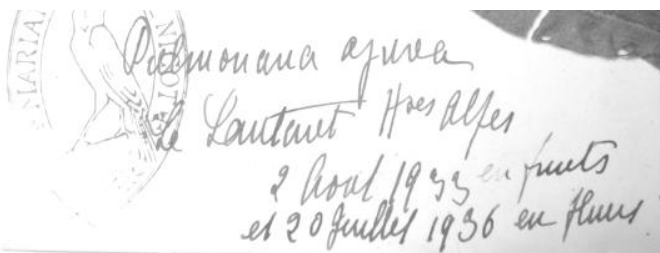 MARIA
LOT
Pulmonaria azurea
Le Lautaret Htes Alpes
2 Aout 1933 en fruits
et 20 Juillet 1936 en fleurs